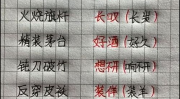 火烧旗杆 长叹(长炭)
精装茅台 好酒(好久)
钝刀破竹 想研(响研)
反穿皮袄 装佯(装羊)